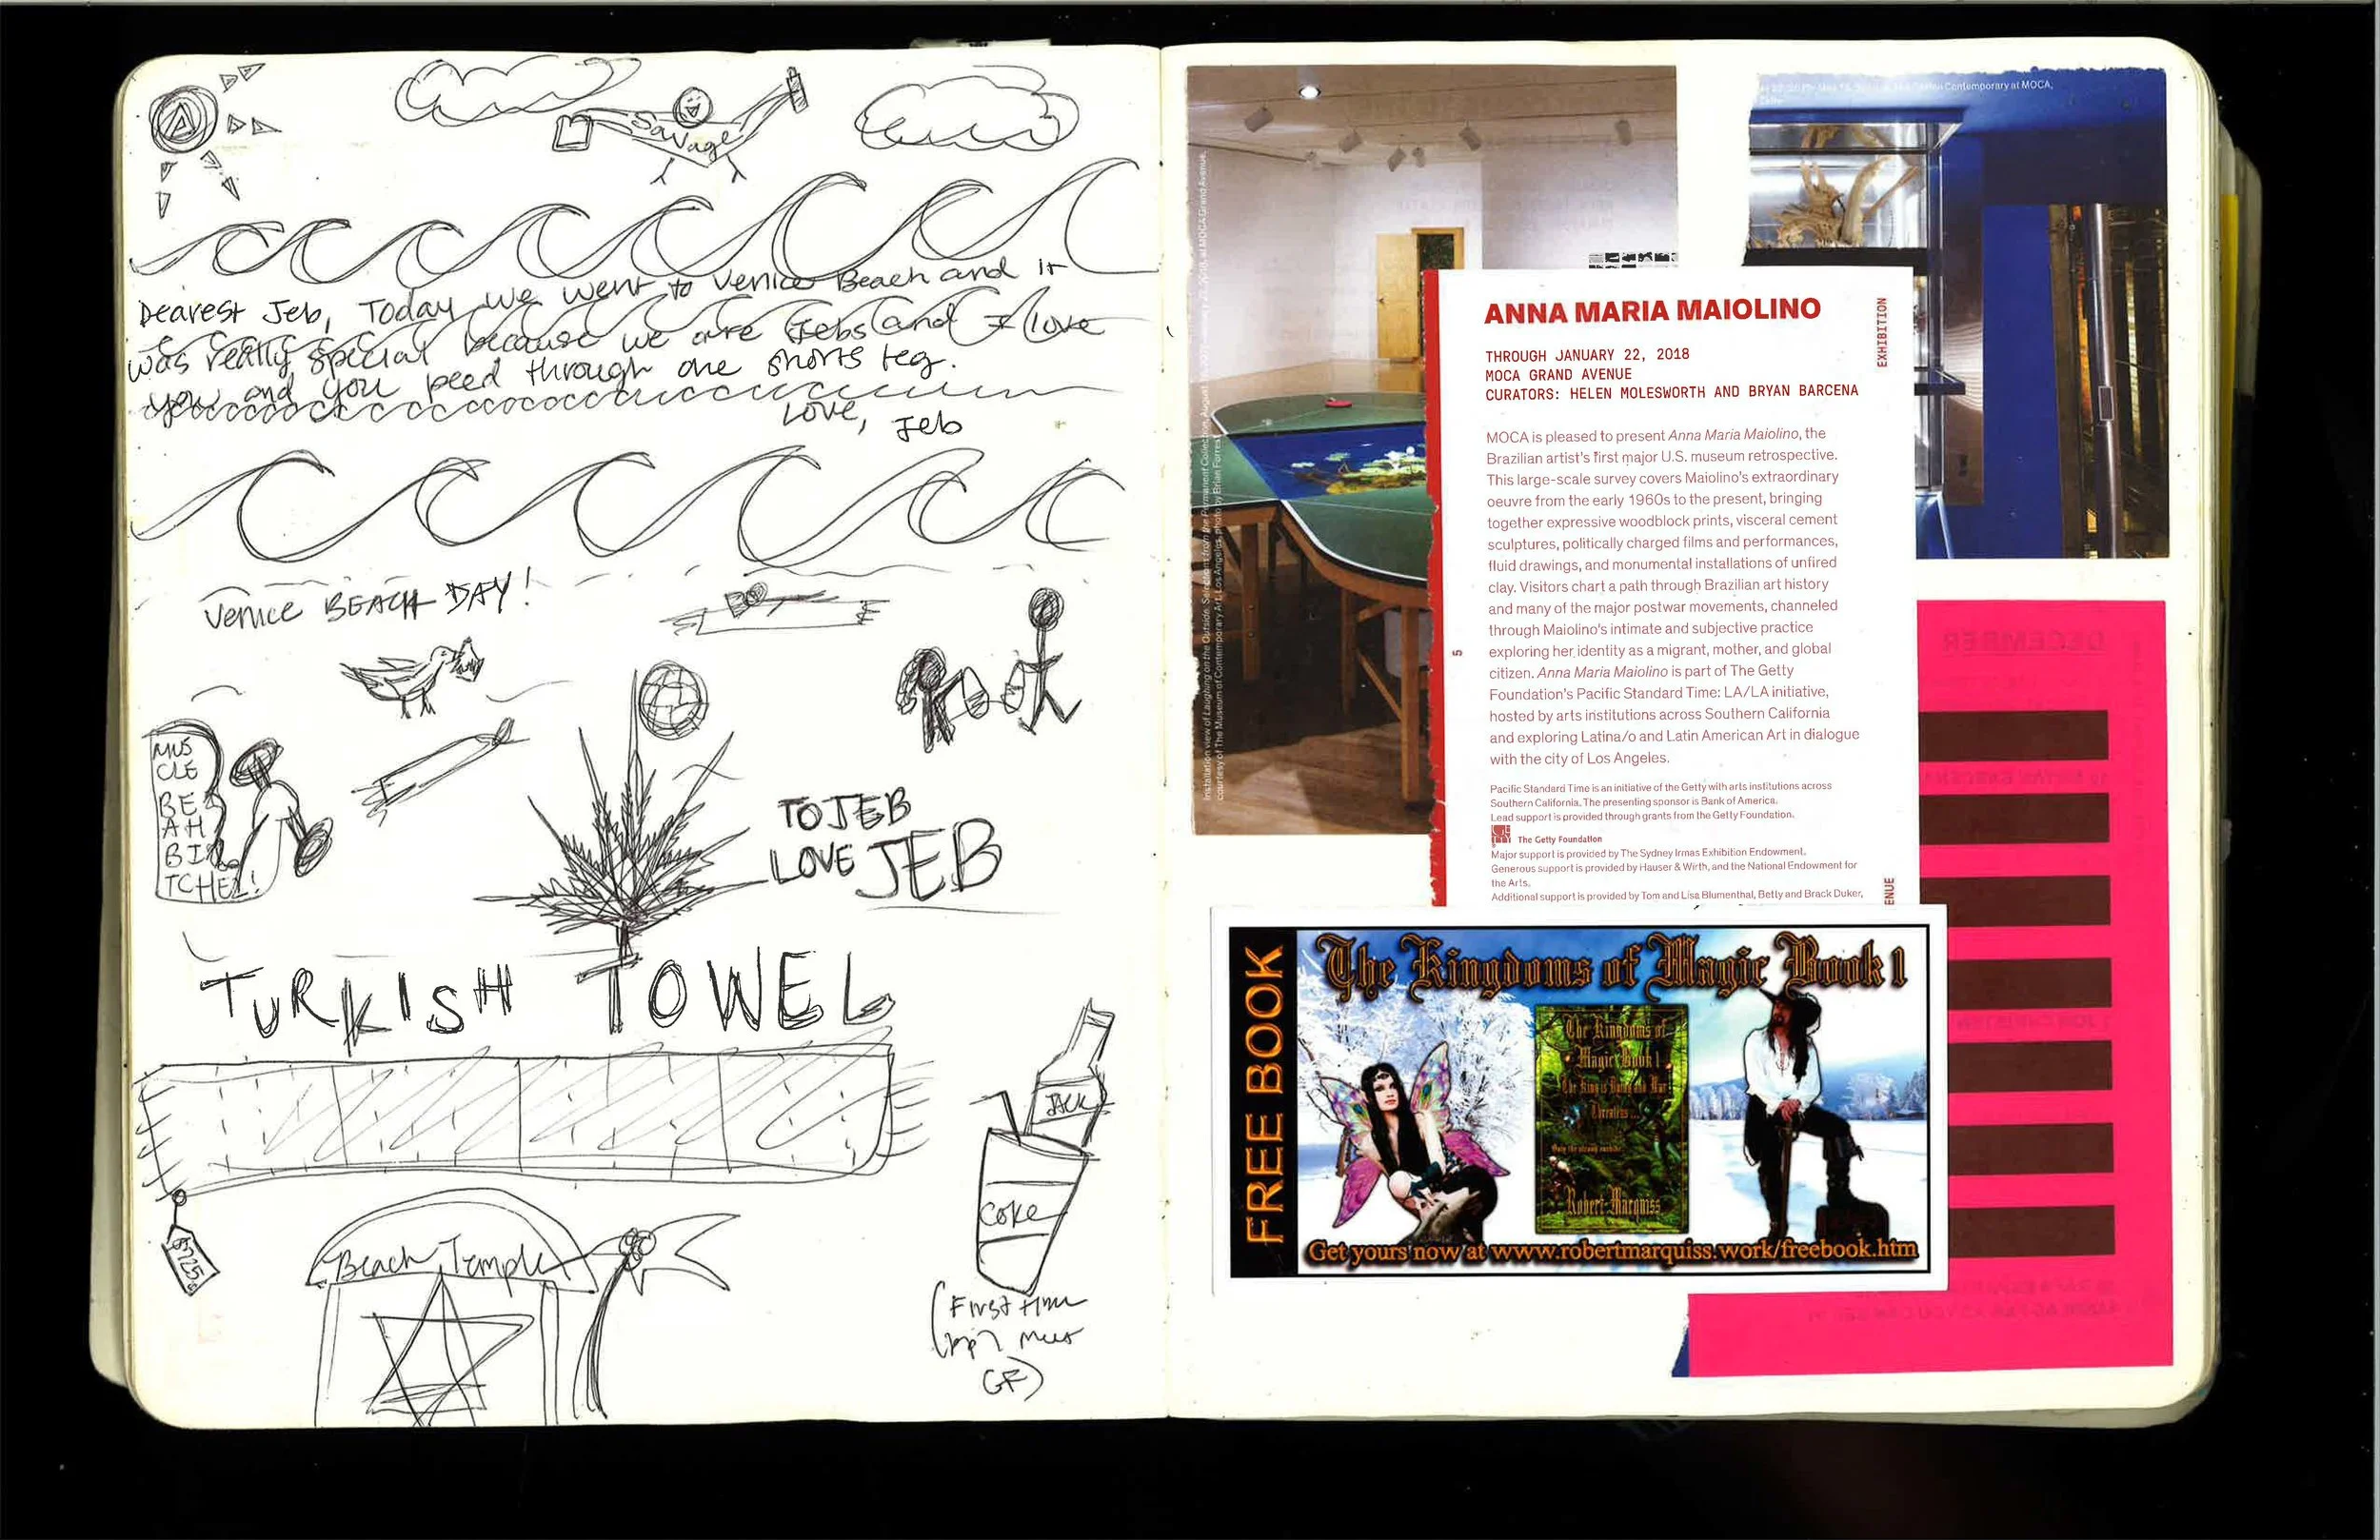 Savage
Dearest Jeb, Today we went to Venice Beach and it
was really special because we are Jebs and I love
you and you peed through one shorts leg.
Love, Jeb
Venice BEACH DAY!
MUS
CLE
BE
AH
BI
TCHEZ!
TO JEB
LOVE JEB
TURKISH TOWEL
$725
JACK
COKE
Beach Temple
(First time
GF)
Installation view of Laughing on the Outside: Selections from the Permanent Collection, August
courtesy of The Museum of Contemporary Art, Los Angeles, photo by Brian Forrest
Contemporary at MOCA,
ANNA MARIA MAIOLINO
EXHIBITION
THROUGH JANUARY 22, 2018
MOCA GRAND AVENUE
CURATORS: HELEN MOLESWORTH AND BRYAN BARCENA
MOCA is pleased to present Anna Maria Maiolino, the
Brazilian artist's first major U.S. museum retrospective.
This large-scale survey covers Maiolino's extraordinary
oeuvre from the early 1960s to the present, bringing
together expressive woodblock prints, visceral cement
sculptures, politically charged films and performances,
fluid drawings, and monumental installations of unfired
clay. Visitors chart a path through Brazilian art history
and many of the major postwar movements, channeled
through Maiolino's intimate and subjective practice
exploring her identity as a migrant, mother, and global
citizen. Anna Maria Maiolino is part of The Getty
Foundation's Pacific Standard Time: LA/LA initiative,
hosted by arts institutions across Southern California
and exploring Latina/o and Latin American Art in dialogue
with the city of Los Angeles.
5
Pacific Standard Time is an initiative of the Getty with arts institutions across
Southern California. The presenting sponsor is Bank of America.
Lead support is provided through grants from the Getty Foundation.
The Getty Foundation
Major support is provided by The Sydney Irmas Exhibition Endowment.
Generous support is provided by Hauser & Wirth, and the National Endowment for
the Arts.
Additional support is provided by Tom and Lisa Blumenthal, Betty and Brack Duker,
ENUE
DECEMBER
FREE BOOK
The Kingdoms of Magic Book 1
The Kingdoms of
Magic Book 1
Robert Marquiss
Get yours now at www.robertmarquiss.work/freebook.htm